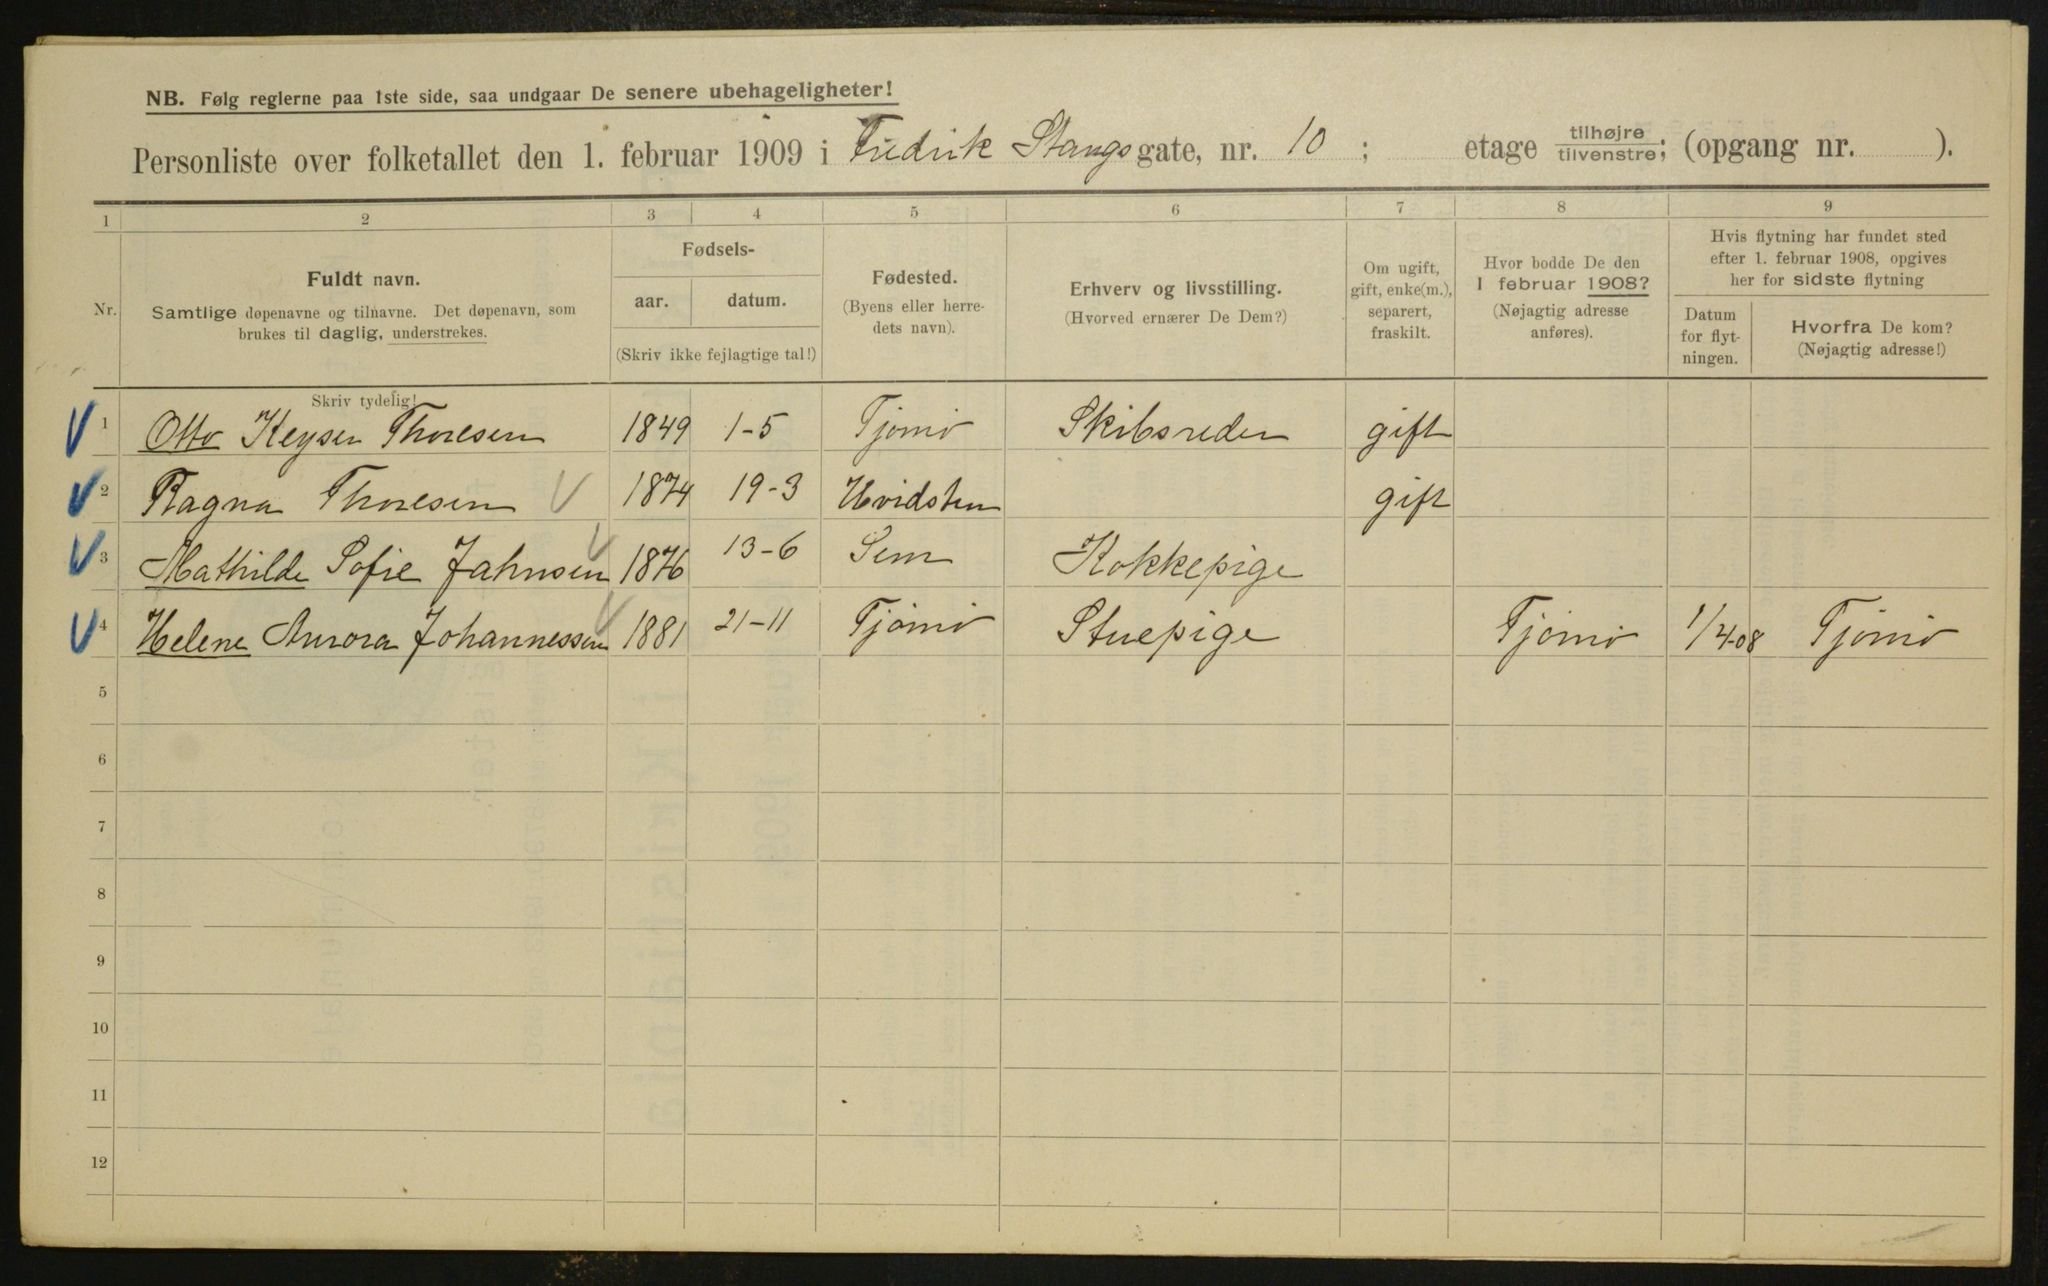 NB. Følg reglerne paa 1ste side, saa undgaar De senere ubehageligheter!
Personliste over folketallet den 1. februar 1909 i Fredrik Stangs gate, nr. 10 ; etage tilhøjre/tilvenstre; (opgang nr. ).
1 2 3 4 5 6 7 8 9
Nr.
Fuldt navn.
Samtlige døpenavne og tilnavne. Det døpenavn, som
brukes til daglig, understrekes.
Fødsels-
aar. datum.
(Skriv ikke fejlagtige tal!)
Fødested.
(Byens eller herre-
dets navn).
Erhverv og livsstilling.
(Hvorved ernærer De Dem?)
Om ugift,
gift, enke(m.),
separert,
fraskilt.
Hvor bodde De den
1 februar 1908?
(Nøjagtig adresse
anføres).
Hvis flytning har fundet sted
efter 1. februar 1908, opgives
her for sidste flytning
Datum
for flyt-
ningen.
Hvorfra De kom?
(Nøjagtig adresse!)
Skriv tydelig!
1 Otto Keyser Thoresen 1849 1-5 Tjømø Skibsreder gift
2 Ragna Thoresen 1874 19-3 Hvidsten gift
3 Mathilde Sofie Jahnsen 1876 13-6 Sem Kokkepige
4 Helene Aurora Johannessen 1881 21-11 Tjømø Stuepige Tjømø 1/4-08 Tjømø
5
6
7
8
9
10
11
12